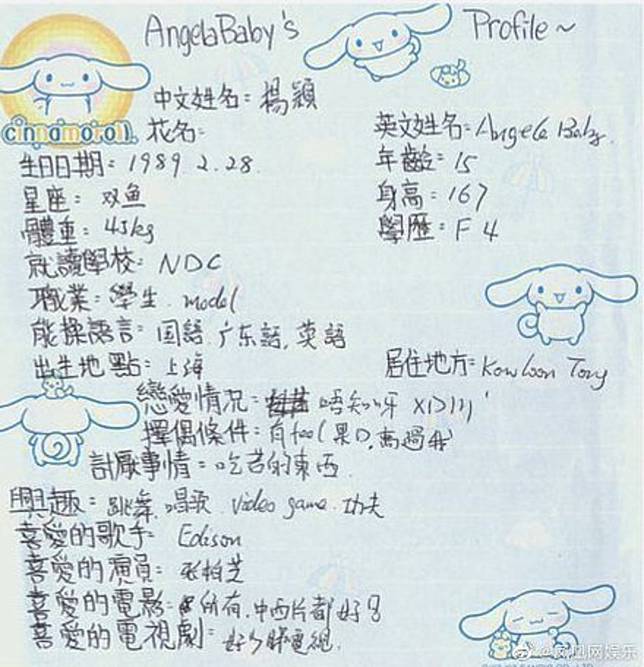 AngelaBaby's Profile~
cinnamoroll
中文姓名：楊穎
花名：
英文姓名：Angela Baby.
生日日期：1989.2.28.
年齡：15
星座：双鱼
身高：167
體重：43kg
學歷：F4
就讀學校：NDC
職業：學生.model
能操語言：国語.广东語.英語
出生地點：上海
居住地方：Kowloon Tong
戀愛情況：唔知呀 XD
擇偶條件：有feel果D.高過我
討厭事情：吃苦的東西
興趣：跳舞.唱歌.video game.功夫
喜愛的歌手：Edison
喜愛的演員：张柏芝
喜愛的電影：所有.中西片都好
喜愛的電視劇：好少睇電視.
@凤凰网娱乐